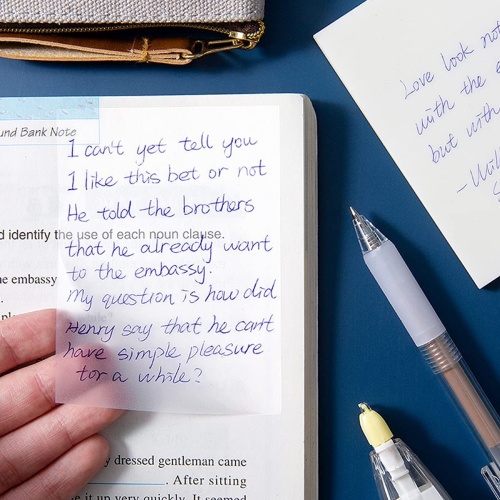 und Bank Note
I can't yet tell you
I like this bet or not
He told the brothers
d identify the use of each noun clause.
that he already want
to the embassy.
he embassy
My question is how did
Henry say that he can't
have simple pleasure
for a while?
y dressed gentleman came
. After sitting
it up very quickly. It seemed
Love look not
with the
but with